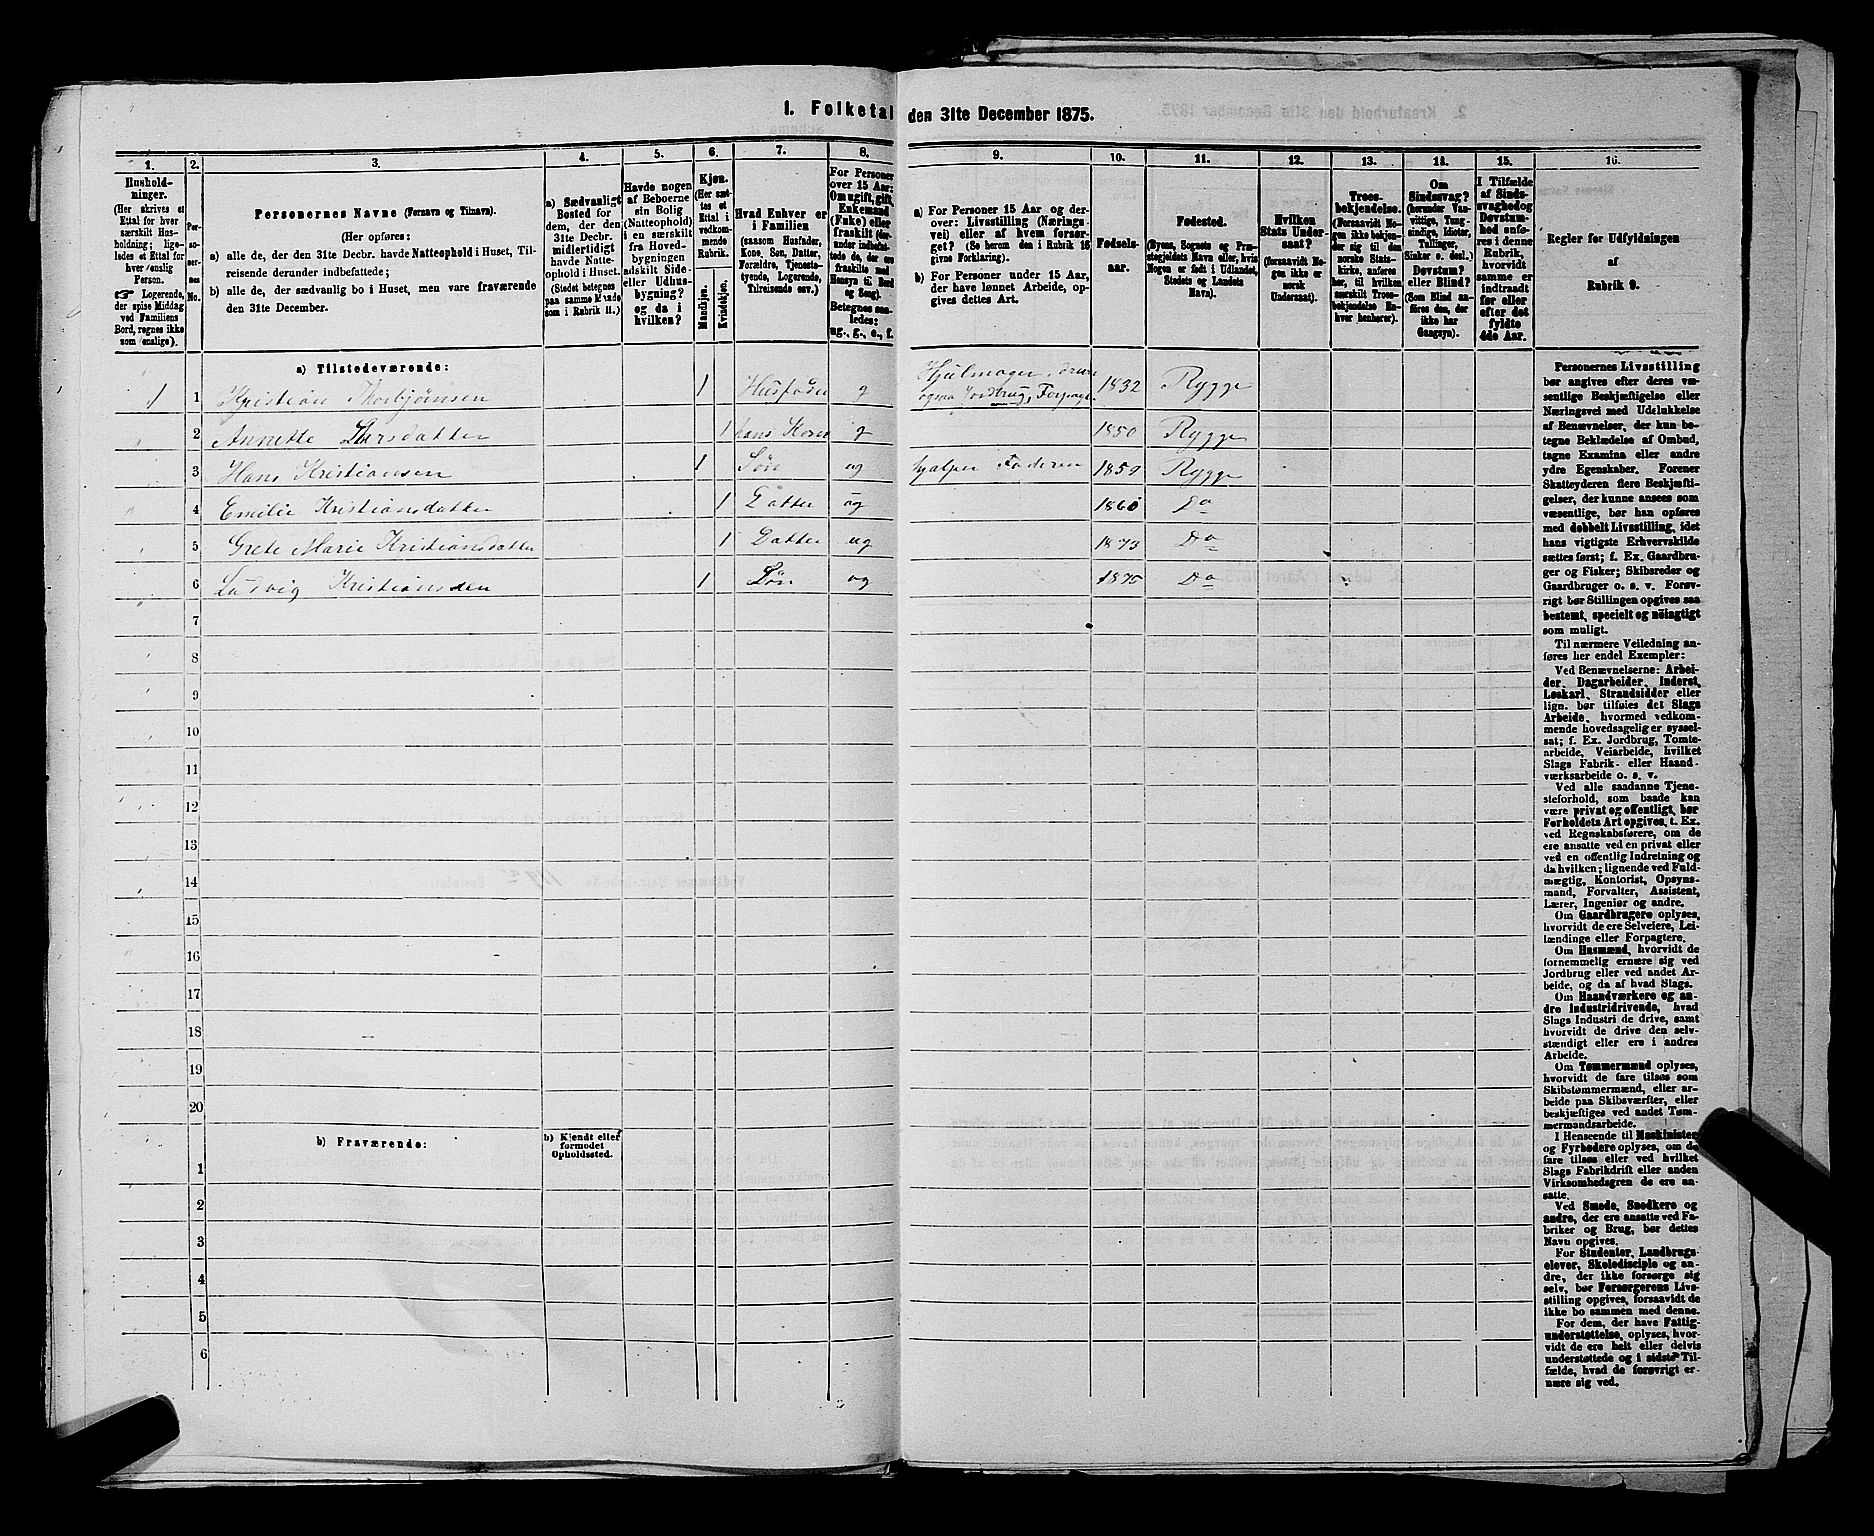 1. Folketal den 31te December 1875.
1. 2. 3. 4. 5. 6. 7. 8. 9. 10. 11. 12. 13. 14. 15. 16.
Hushold-
ninger.
(Her skrives et
Ettal for hver
særskilt Hus-
holdning; lige-
ledes et Ettal for
hver enslig
Person.
Logerende,
der spise Middag
ved Familiens
Bord, regnes ikke
som enslige).
Per-
so-
ner-
nes
No.
Personernes Navne (Fornavn og Tilnavn).
(Her opføres:
a) alle de, der den 31te Decbr. havde Natteophold i Huset, Til-
reisende derunder indbefattede;
b) alle de, der sædvanlig bo i Huset, men vare fraværende
den 31te December.
a) Sædvanligt
Bosted for
dem, der den
31te Decbr.
midlertidigt
havde Natte-
ophold i Huset.
(Stedet betegnes
paa samme Maade
som i Rubrik 11.)
Havde nogen
af Beboerne
sin Bolig
(Natteophold)
i en særskilt
fra Hoved-
bygningen
adskilt Side-
eller Udhus-
bygning?
og da i
hvilken?
Kjøn.
(Her sæt-
tes et
Ettal i
vedkom-
mende
Rubrik.
Mandkjøn.
Kvindekjøn.
Hvad Enhver er
i Familien
(saasom Husfader,
Kone, Søn, Datter,
Forældre, Tjeneste-
tyende, Logerende,
Tilreisende osv.)
For Personer
over 15 Aar:
Om ugift, gift,
Enkemand
(Enke) eller
fraskilt (her-
under indbefat-
tede de, der ere
fraskilte med
Hensyn til Bord
og Seng).
Betegnes saa-
ledes:
ug., g., e., f.
a) For Personer 15 Aar og der-
over: Livsstilling (Nærings-
vei) eller af hvem forsør-
get? (Se herom den i Rubrik 16
givne Forklaring).
b) For Personer under 15 Aar,
der have lønnet Arbeide, op-
gives dettes Art.
Fødsels-
aar.
Fødested.
(Byens, Sognets og Præ-
stegjeldets Navn eller, hvis
Nogen er født i Udlandet,
Stedets og Landets
Navn).
Hvilken
Stats Under-
saat?
(forsaavidt No-
gen ikke er
norsk
Undersaat).
Troes-
bekjendelse.
(Forsaavidt No-
gen ikke bekjen-
der sig til den
norske Stats-
kirke, anføres
her, til hvilken
særskilt Troes-
bekjendelse En-
hver henhører).
Om
Sindssvag?
(herunder Van-
vittige, Tung-
sindige, Idioter,
Tullinger,
Sinker o. desl.)
Døvstum?
eller Blind?
(Som Blind an-
føres den, der
ikke har
Gangsyn).
I Tilfælde
af Sinds-
svaghed og
Døvstum-
hed anfø-
res i denne
Rubrik,
hvorvidt
samme er
indtraadt
før eller
efter det
fyldte
4de Aar.
Regler for Udfyldningen
af
Rubrik 9.
a) Tilstedeværende:
1 1 Kristian Thorbjørnsen 1 Husfader g Hjulmager, 1832 Rygge
Jordbrug, Forpagt.
2 Annette Larsdatter 1 hans Kone g 1850 Rygge
3 Hans Kristiansen 1 Søn ug hjælper Faderen 1859 Rygge
4 Emilie Kristiansdatter 1 Datter ug 1860 Do
5 Grete Marie Kristiansdatter 1 Datter ug 1873 Do
6 Ludvig Kristiansen 1 Søn ug 1875 Do
7
8
9
10
11
12
13
14
15
16
17
18
19
20
b) Fraværende:
b) Kjendt eller
formodet
Opholdssted.
1
2
3
4
5
6
Personernes Livsstilling
bør angives efter deres væ-
sentlige Beskjæftigelse eller
Næringsvei med Udelukkelse
af Benævnelser, der kun be-
tegne Beklædelse af Ombud,
tagne Examina eller andre
ydre Egenskaber. Forener
Skatteyderen flere Beskjæfti-
gelser, der kunne ansees som
væsentlige, bør han opføres
med dobbelt Livsstilling, idet
hans vigtigste Erhvervskilde
sættes først; f. Ex. Gaardbru-
ger og Fisker; Skibsreder og
Gaardbruger o. s. v. Forøv-
rigt bør Stillingen opgives saa
bestemt, specielt og nøiagtigt
som muligt.
Til nærmere Veiledning an-
føres her endel Exempler:
Ved Benævnelserne: Arbei-
der, Dagarbeider, Inderst,
Løskarl, Strandsidder eller
lign. bør tilføies det Slags
Arbeide, hvormed vedkom-
mende hovedsagelig er syssel-
sat; f. Ex. Jordbrug, Tomte-
arbeide, Veiarbeide, hvilket
Slags Fabrik- eller Haand-
værksarbeide o. s. v.
Ved alle saadanne Tjene-
steforhold, som baade kan
være privat og offentligt, bør
Forholdets Art opgives, t. Ex.
ved Regnskabsførere, om de
ere ansatte ved en privat eller
ved en offentlig Indretning og
da hvilken; lignende ved Fuld-
mægtig, Kontorist, Opsyns-
mand, Forvalter, Assistent,
Lærer, Ingeniør og andre.
Om Gaardbrugere oplyses,
hvorvidt de ere Selveiere, Lei-
lændinge eller Forpagtere.
Om Husmænd, hvorvidt de
fornemmelig ernære sig ved
Jordbrug eller ved andet Ar-
beide, og da af hvad Slags.
Om Haandværkere og an-
dre Industridrivende, hvad
Slags Industri de drive, samt
hvorvidt de drive den selv-
stændigt eller ere i andres
Arbeide.
Om Tømmermænd oplyses,
hvorvidt de fare tilsøs som
Skibstømmermænd, eller ar-
beide paa Skibsværfter, eller
beskjæftiges ved andet Tøm-
mermandsarbeide.
I Henseende til Maskinister
og Fyrbødere oplyses, om de
fare tilsøs eller ved hvilket
Slags Fabrikdrift eller anden
Virksomhedsgren de ere an-
satte.
Ved Smede, Snedkere og
andre, der ere ansatte ved Fa-
briker og Brug, bør dettes
Navn opgives.
For Studenter, Landbrugs-
elever, Skoledisciple og an-
dre, der ikke forsørge sig
selv, bør Forsørgerens Livs-
stilling opgives, forsaavidt de
ikke bo sammen med denne.
For dem, der have Fattig-
understøttelse, oplyses, hvor-
vidt de ere helt eller delvis
understøttede og i sidste Til-
fælde, hvad de forøvrigt er-
nære sig ved.